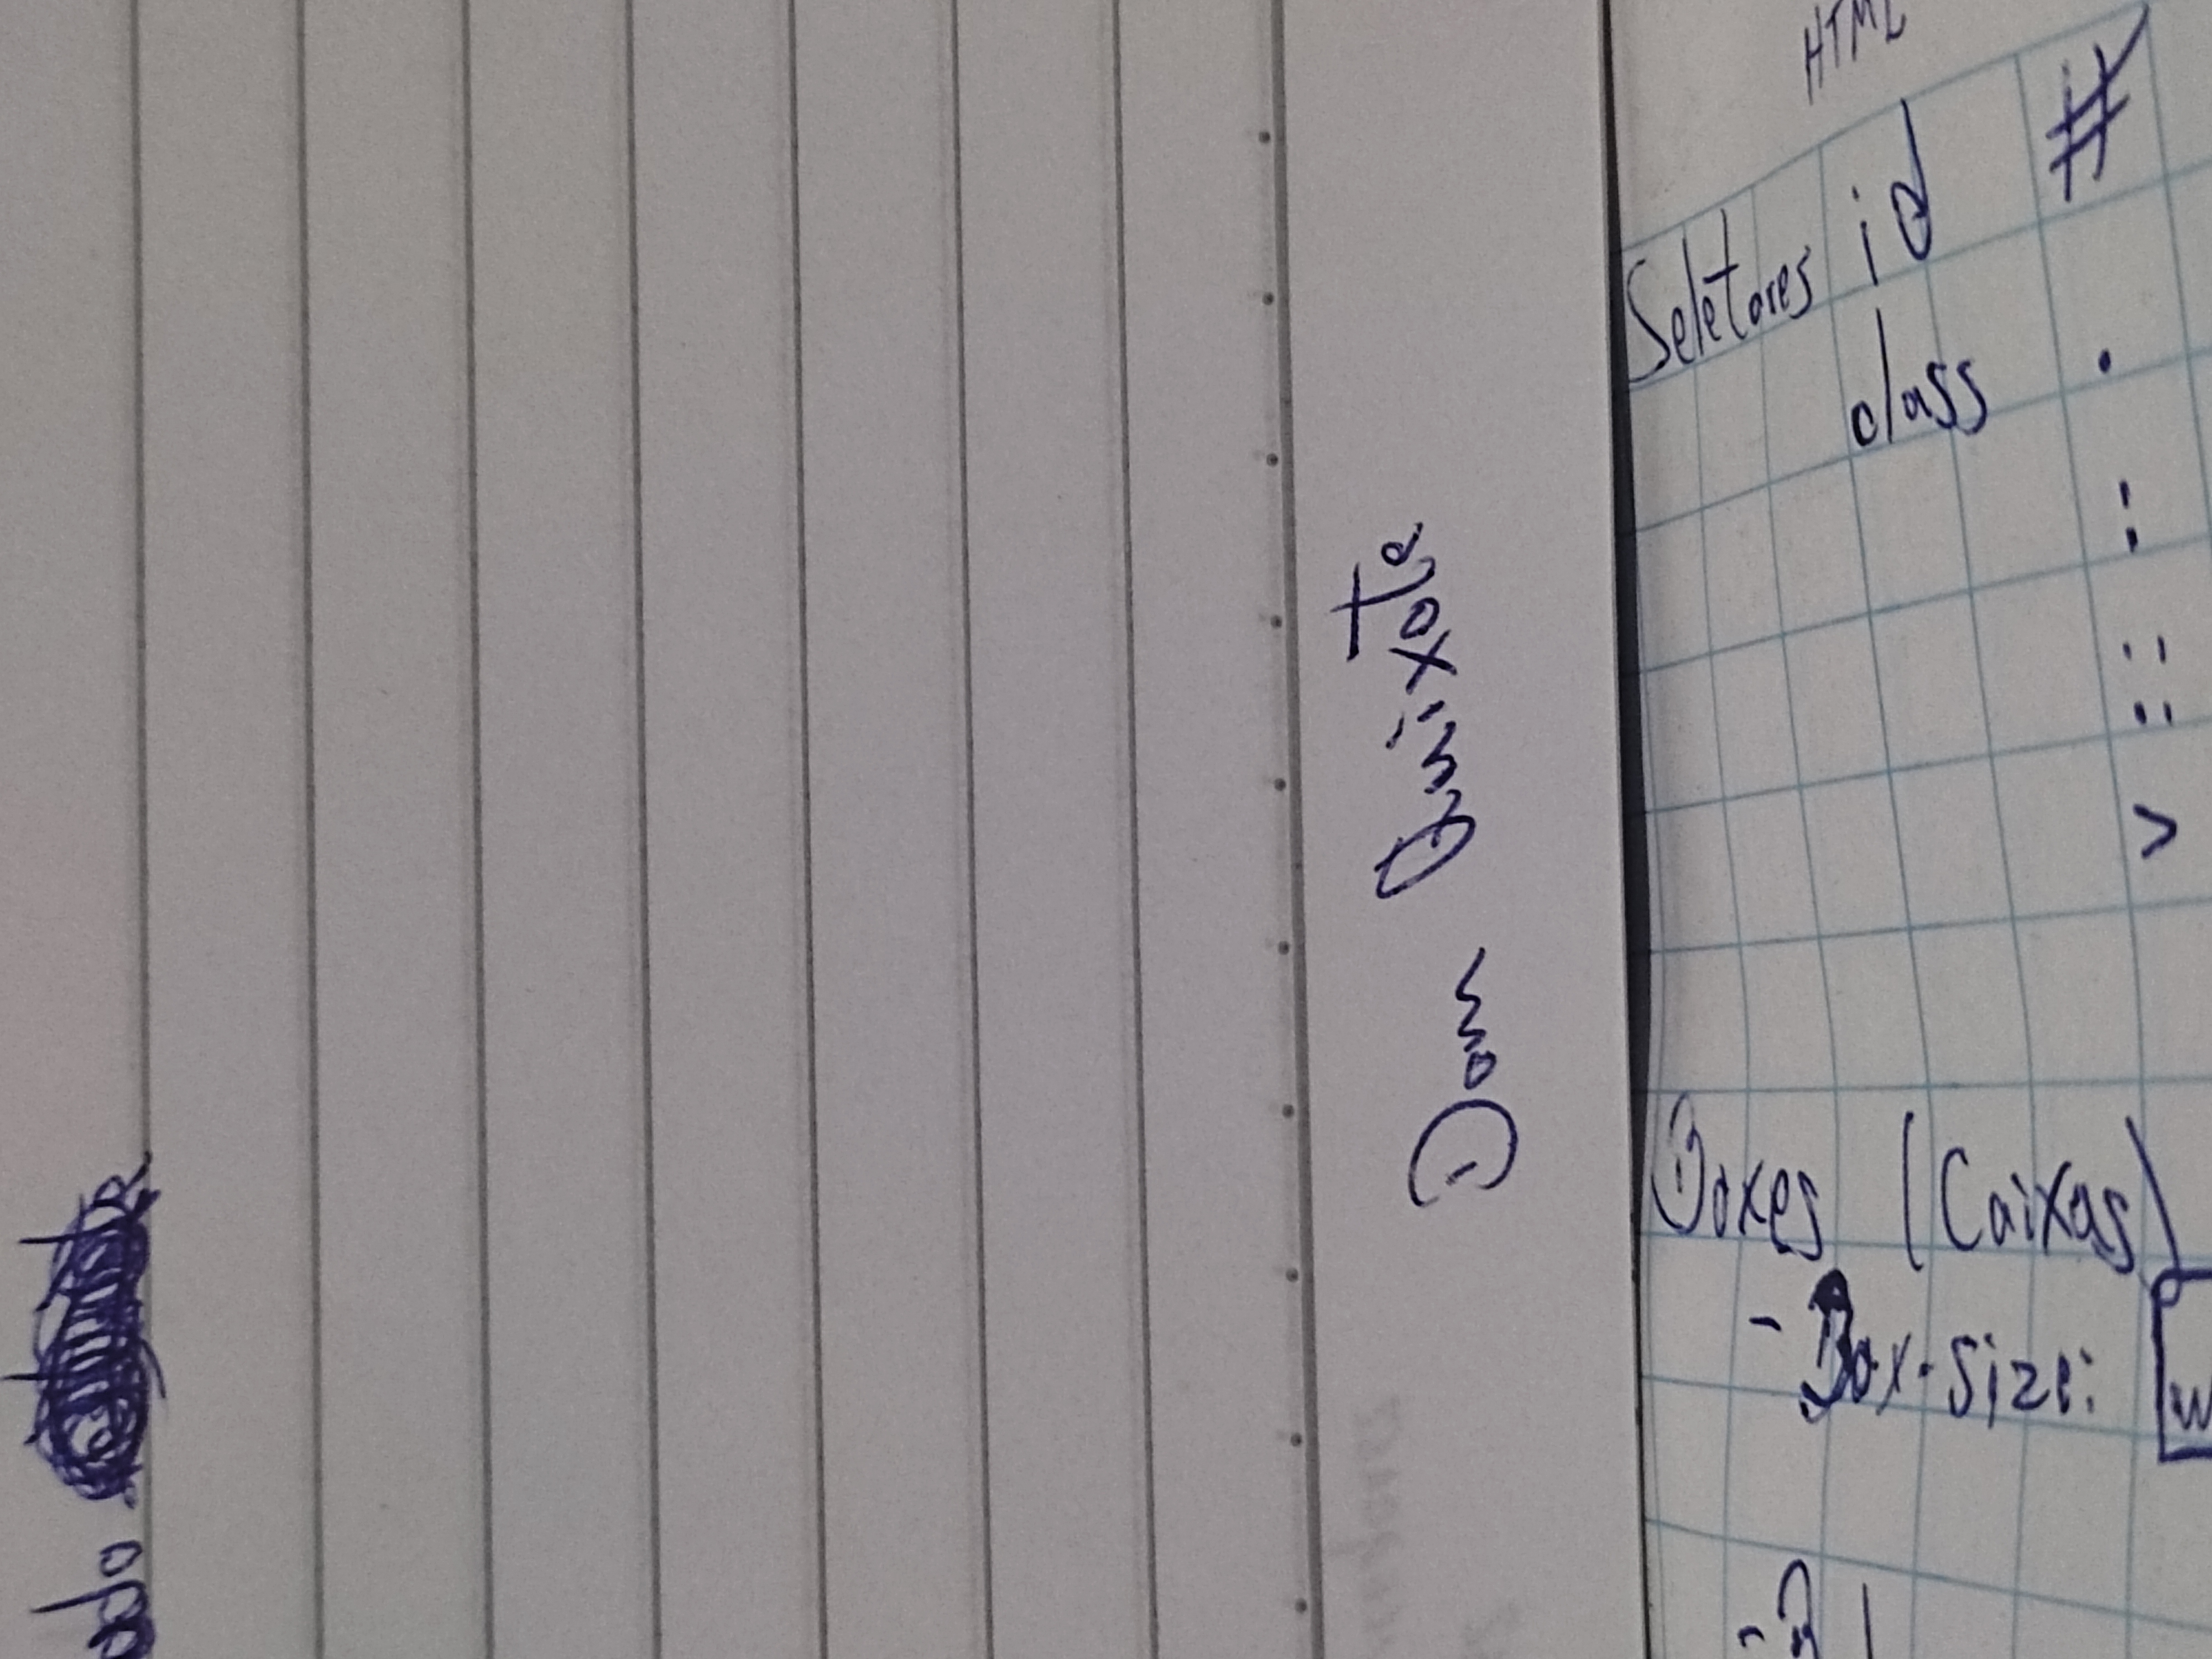 ado
Dom Quixote
Seletores id #
class .
HTML
Boxes (Caixas)
- Box-Size:
W